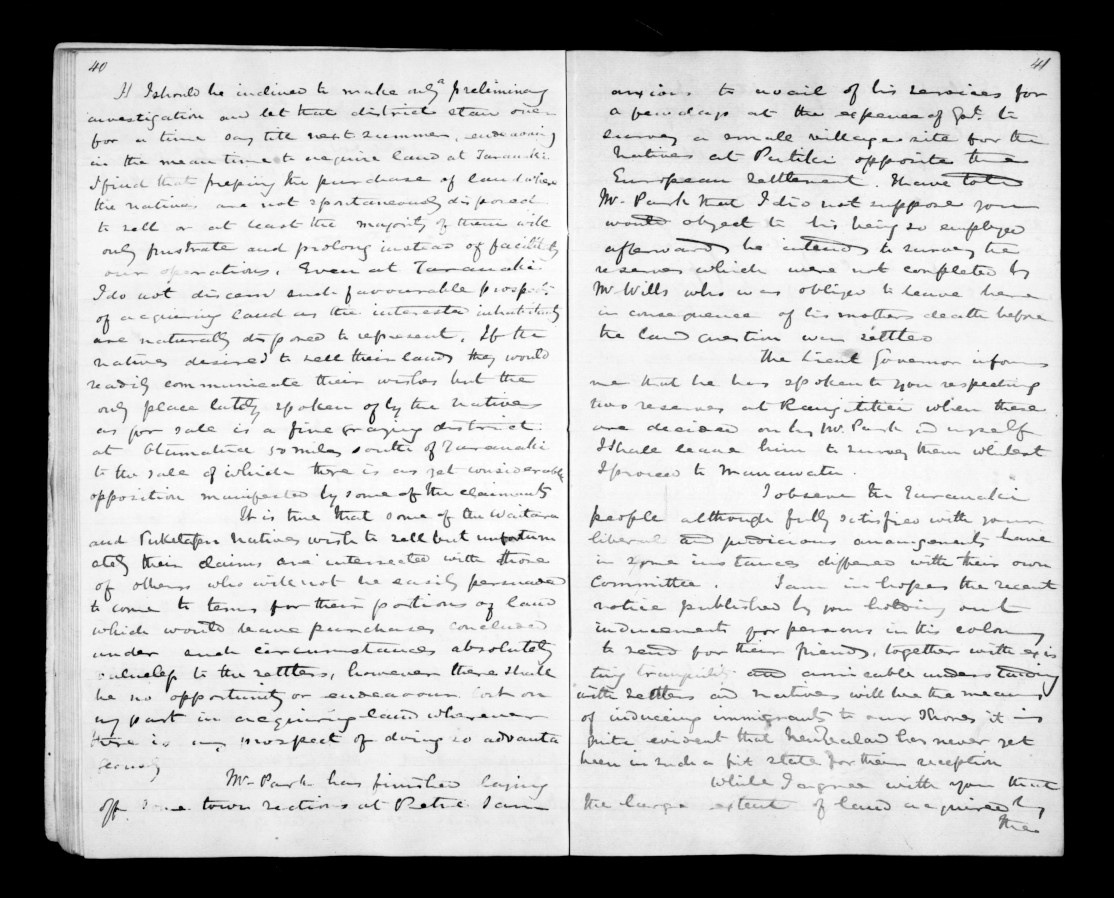 40
I should be inclined to make only a preliminary
investigation and let that district stan over
for a time say till next summer, endeavoring
in the mean time to acquire land at Taranaki.
I find that pressing the purchase of land where
the natives are not spontaneously disposed
to sell or at least the majority of them will
only frustrate and prolong instead of facilitate
our operations. Even at Taranaki
I do not discern such favourable prospects
of acquiring land as the interested inhabitants
are naturally disposed to represent. If the
natives desired to sell their lands they would
readily communicate their wishes but the
only place lately spoken of by the natives
as for sale is a fine grazing district
at 50 miles south of Taranaki
to the sale of which there is as yet considerable
opposition manifested by some of the claimants
It is true that some of the Waitara
and Puketapu natives wish to sell but unfortun
ately their claims are intersected with those
of others who will not be easily persuaded
to come to terms for their portions of land
which would leave purchases concluded
under such circumstances absolutely
valueless to the settlers, however there shall
be no opportunity or endeavour lost on
my part in acquiring land wherever
there is any prospect of doing so advanta
geously
Mr. Park has finished laying
off some town sections at Petre I am
41
anxious to avail of his services for
a few days at the expense of Govt. to
survey a small village site for the
natives at Putiki opposite the
European settlement. I have told
Mr. Park that I did not suppose you
would object to his being so employed
afterwards he intends to survey the
reserves which were not completed by
Mr Wills who was obliged to leave here
in consequence of his mothers death before
the land question was settled
The Lieut Governor informs
me that he has spoken to you respecting
two reserves at Rangitikei when these
are decided on by Mr. Park and myself
I shall leave him to survey them whilst
I proceed to Manawatu.
I observe the Taranaki
people although fully satisfied with your
liberal and judicious arrangements have
in some instances differed with their own
Committee. I am in hopes the recent
notice published by you holding out
inducements for persons in this colony
to send for their friends, together with exis
ting tranquility and amicable understanding
with settlers and natives will be the means
of inducing immigrants to our shores it is
quite evident that New Zealand has never yet
been in such a fit state for their reception
While I agree with you that
the large extent of land acquired by
the